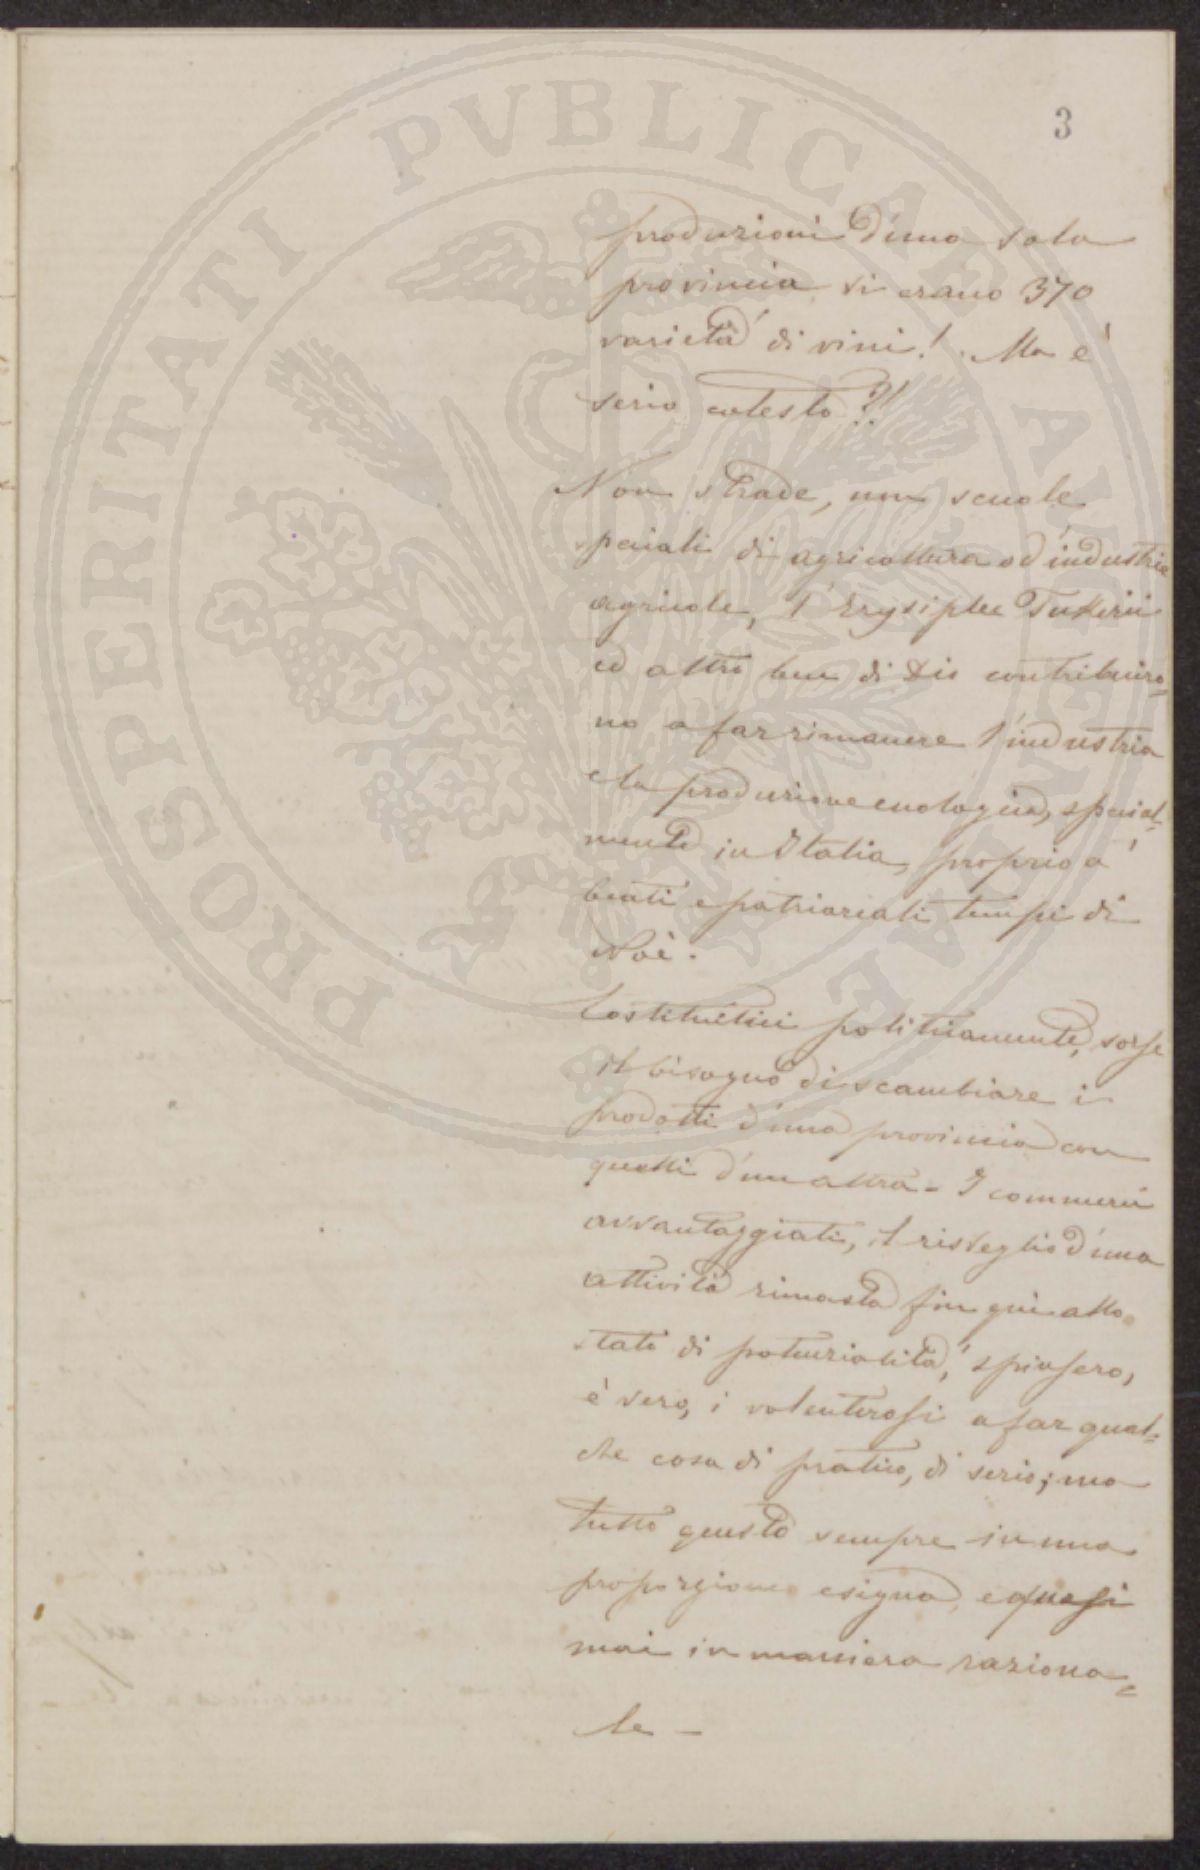 3
produzioni d'una sola
provincia vi erano 370
varietà di vini! Ma è
serio cotesto?!
Non strade, non scuole
speciali di agricoltura od industrie
agricole, l'Erysiphe Tukerii
ed altro ben di Dio contribuiro=
no a far rimanere l'industria
e la produzione enologica, special=
mente in Italia, proprio a'
beati e patriarcali tempi di
Noè.
Costituitici politicamente, sorse
il bisogno di scambiare i
prodotti d'una provincia con
quelli d'un altra - I commercii
avvantaggiati, il risveglio d'una
attività rimasta fin qui allo
stato di potenzialità, spinsero,
è vero, i volenterosi a far qual=
che cosa di pratico, di serio; ma
tutto questo sempre in una
proporzione esigua, e quasi
mai in maniera raziona=
le -
PROSPERITATI PVBLICAE AVGENDAE